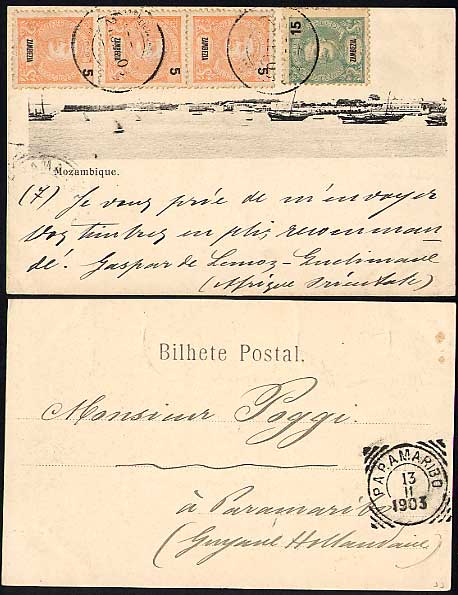 5
5
5
15
ZAMBEZIA
ZAMBEZIA
ZAMBEZIA
ZAMBEZIA
Mozambique.
(7) Je vous prie de m'envoyer
vos timbres en plis recomman
dé. Gaspar de Lemos - Quelimane
(Afrique Orientale)
Bilhete Postal.
Monsieur Poggi.
à Paramaribo
(Guyane Hollandaise)
PARAMARIBO
13
11
1903